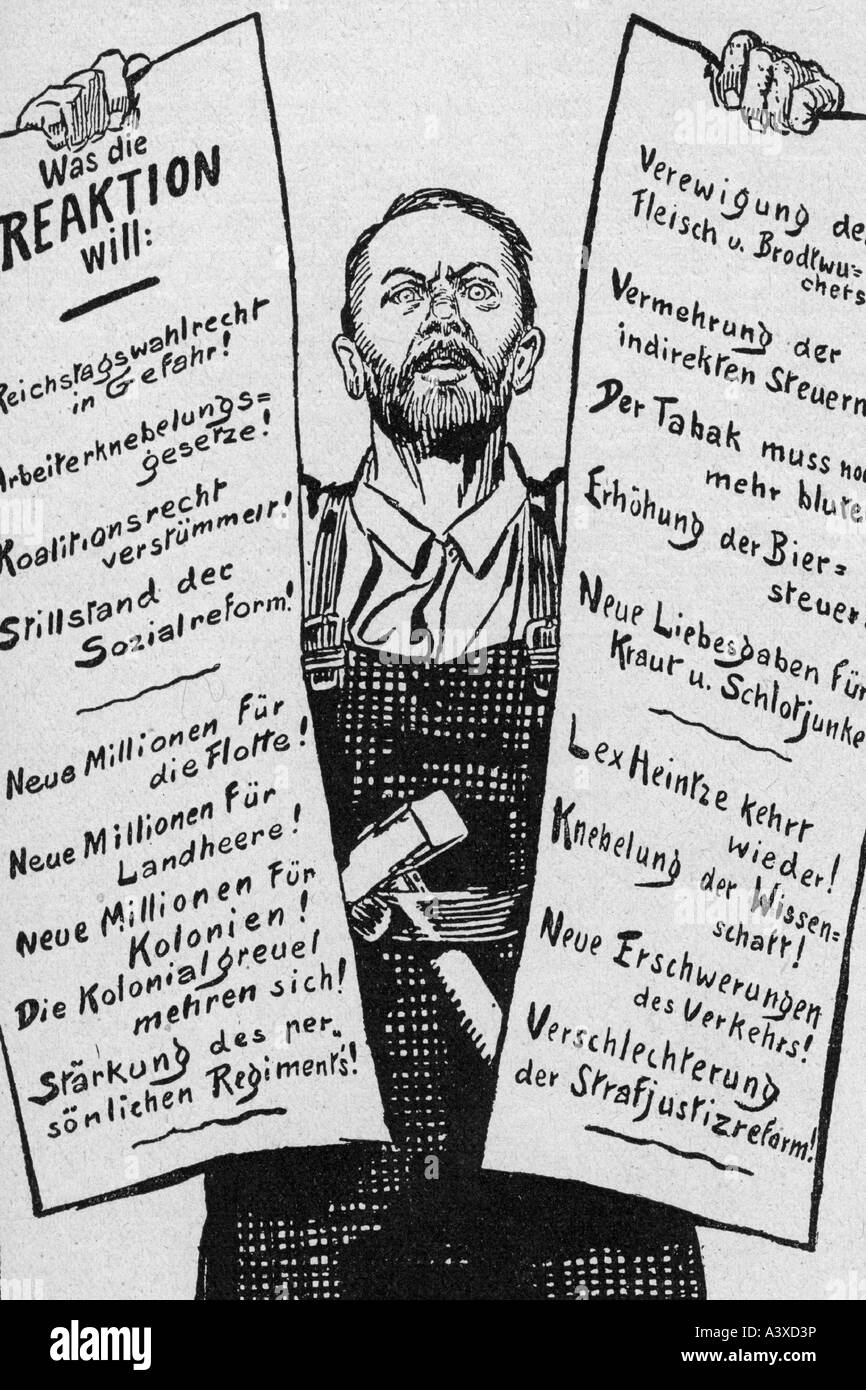 Was die
REAKTION
will:
Reichstagswahlrecht
in Gefahr!
Arbeiterknebelungs=
gesetze!
Koalitionsrecht
verstümmelt!
Stillstand der
Sozialreform!
Neue Millionen für
die Flotte!
Neue Millionen für
Landheere!
Neue Millionen für
Kolonien!
Die Kolonialgreuel
mehren sich!
Stärkung des „per=
sönlichen Regiments“!
Verewigung de
Fleisch u. Brodtwu=
chers
Vermehrung der
indirekten Steuern
Der Tabak muss no
mehr blute
Erhöhung der Bier=
steuer!
Neue Liebesgaben für
Kraut u. Schlotjunke
Lex Heintze kehrt
wieder!
Knebelung der Wissen=
schaft!
Neue Erschwerungen
des Verkehrs!
Verschlechterung
der Strafjustizreform!
alamy
Image ID: A3XD3P
www.alamy.com